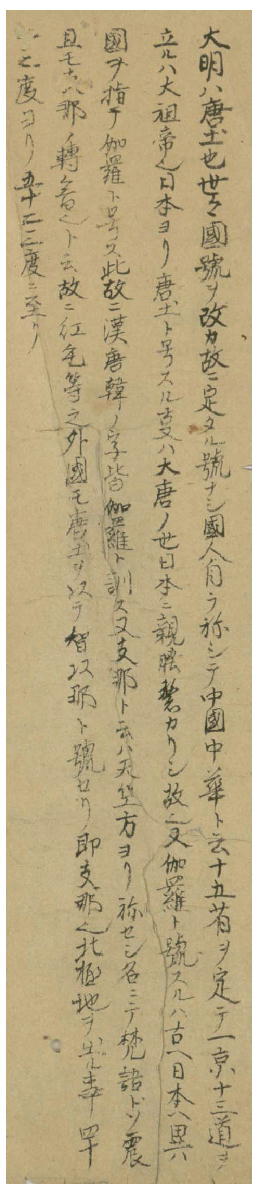 大明ハ唐土也世々國號ヲ改カ故ニ定タル號ナシ國人自ラ称シテ中國中華ト云十五省ヲ定テ一京十三道ヲ
立ルハ大祖帝也日本ヨリ唐土ト号スル支ハ大唐ノ世日本ニ親睦繁カリシ故也又伽羅ト號スルハ古ヘ日本ヘ異ハ
國ヲ指テ伽羅ト号ス此故ニ漢唐韓ノ字皆伽羅ト訓ス又支那ト云ハ天竺方ヨリ称セシ名ニテ梵語トソ震
旦モ支那ノ轉音也ト云故ニ紅毛等之外國モ唐土ヲ以テ智以那ト號セリ即支那也北極地ヲ出ル事四十
之度ヨリ五十二三度ニ至リ